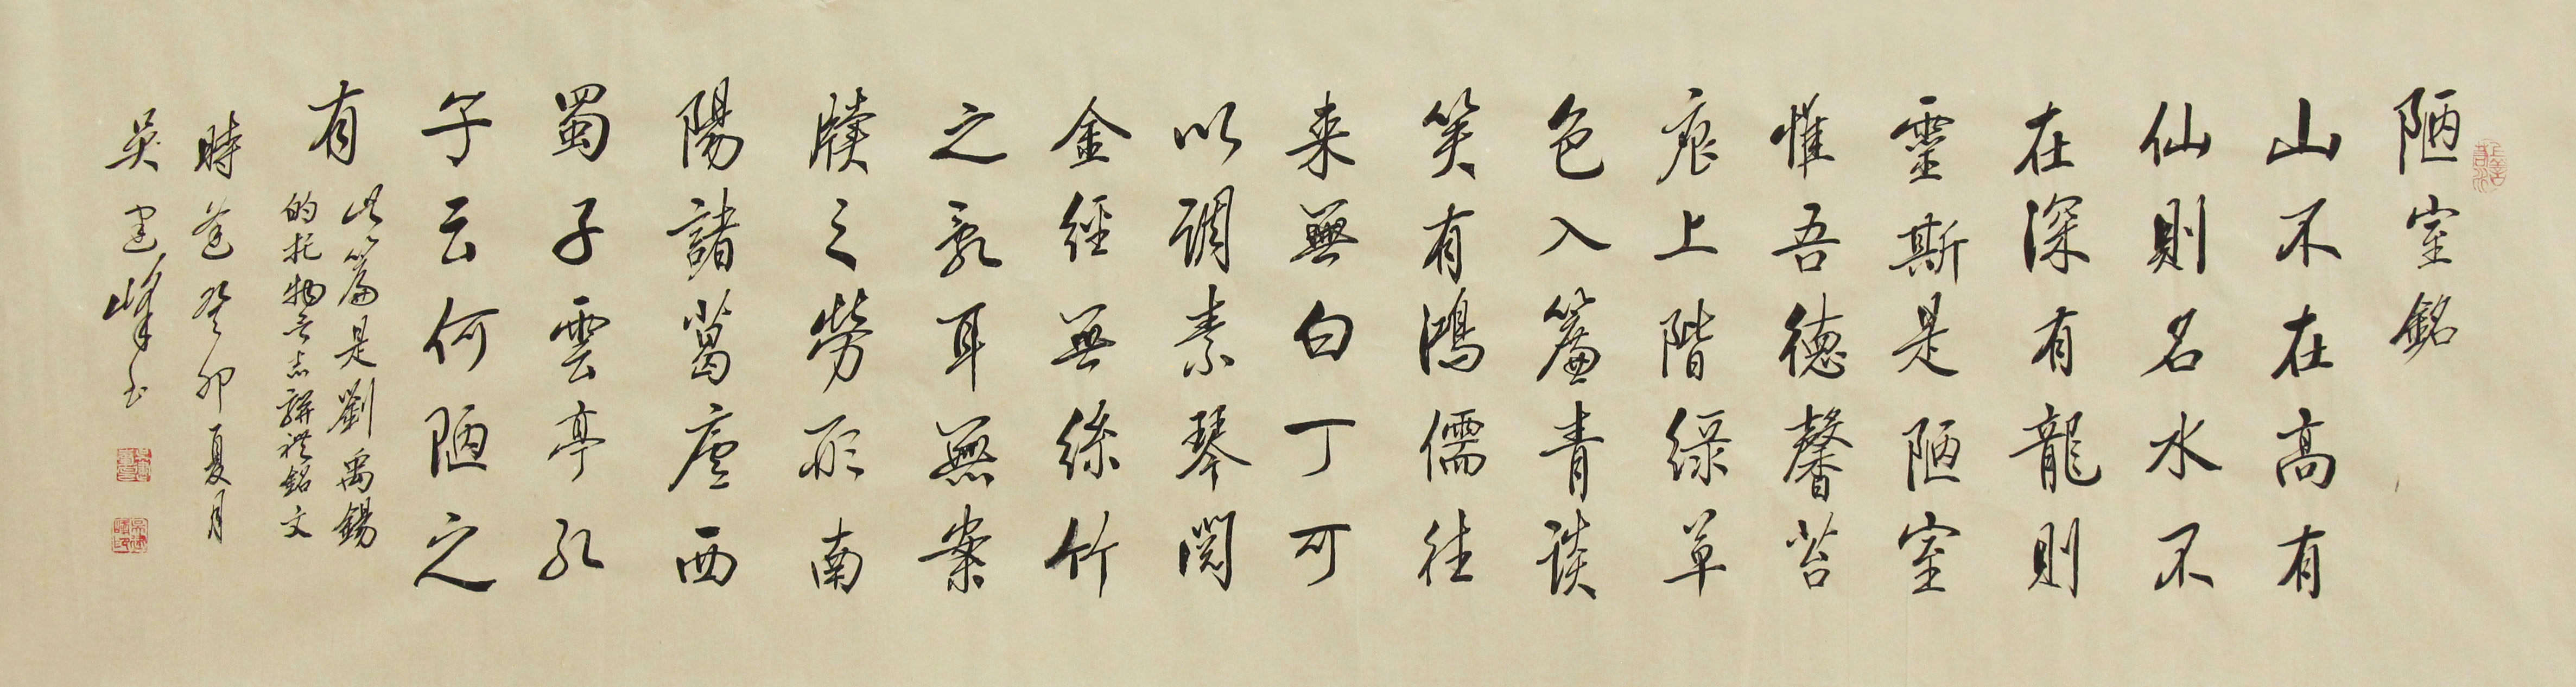 上善若水
陋室銘
山不在高有
仙則名水不
在深有龍則
靈斯是陋室
惟吾德馨苔
痕上階緑草
色入簾青談
笑有鴻儒往
来無白丁可
以調素琴閲
金經無絲竹
之亂耳無案
牘之勞形南
陽諸葛廬西
蜀子雲亭孔
子云何陋之
有
此篇是劉禹錫
的托物言志駢禮銘文
時莅癸卯夏月
吴建峰书